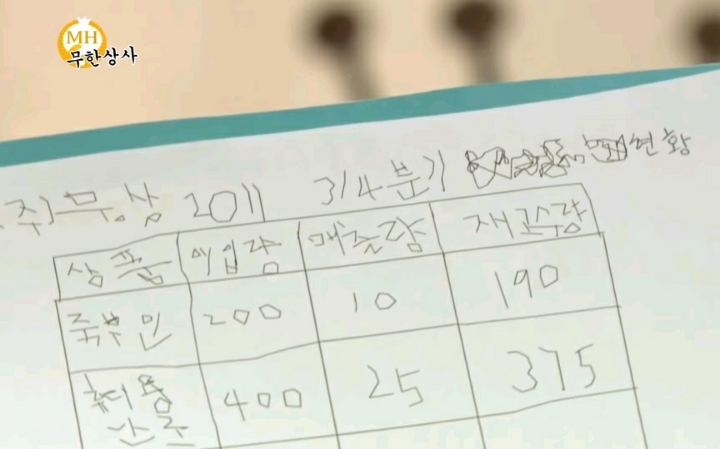 MH
무한상사
주)무.상 2011 3/4분기 현황
상품 매입량 매출량 재고수량
죽부인 200 10 190
휴대용 난로 400 25 375